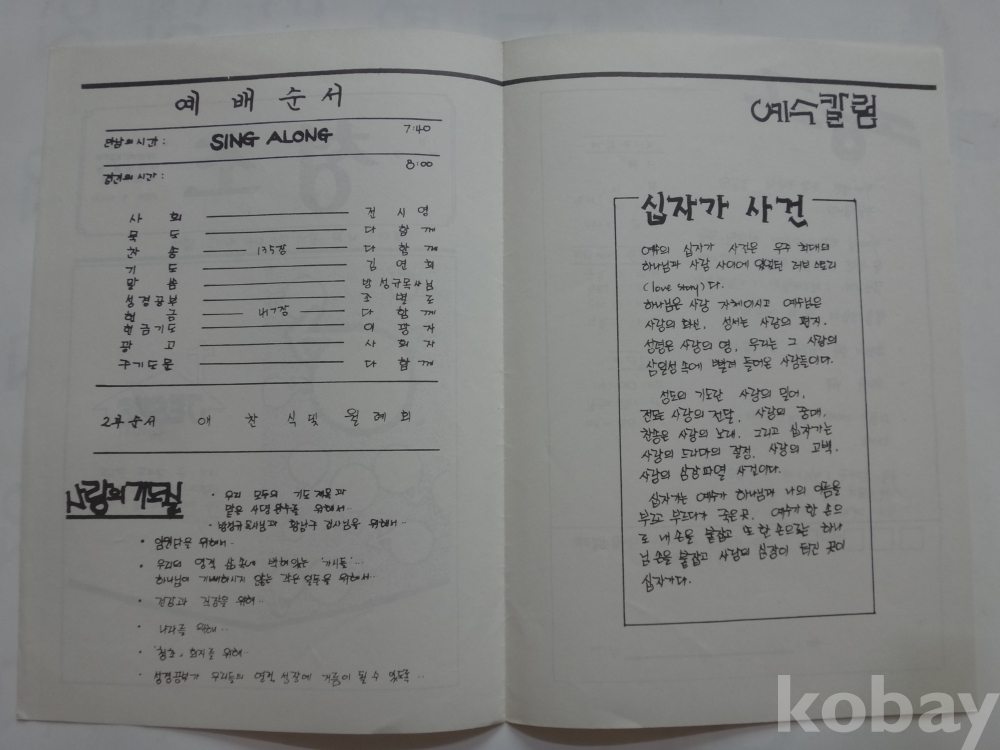 예배순서
만남의시간: SING ALONG 7:40
경건의시간: 8:00
사회 전시영
묵도 다함께
찬송 135장 다함께
기도 김연희
말씀 방성규목사님
성경공부 조별로
헌금 147장 다함께
헌금기도 이광자
광고 사회자
주기도문 다함께
2부순서 애찬식및 월례회
사랑의기도실
• 우리 모두의 기도제목과
맡은 사명 완수를 위해서..
• 방성규목사님과 황남구 감사님을 위해서..
• 임원단을 위해서..
• 우리의 영적 삶속에 박혀있는 '가시들'...
하나님이 기뻐하시지 않는 작은일들을 위해서..
• 건강과 직장을 위해..
• 나라를 위해..
• '청초' 회지를 위해..
• 성경공부가 우리들의 영적 성장에 거름이 될 수 있도록..
예수칼럼
십자가 사건
예수의 십자가 사건은 우주 최대의
하나님과 사람 사이에 있었던 러브스토리
(love story)다.
하나님은 사랑 자체이시고 예수님은
사랑의 화신, 성서는 사랑의 편지.
성령은 사랑의 영, 우리는 그 사랑의
삼일성 속에 빨려 들어온 사람들이다.
성도의 기도란 사랑의 밀어,
전도는 사랑의 전달, 사랑의 중매,
찬송은 사랑의 노래, 그리고 십자가는
사랑의 드라마의 절정, 사랑의 고백,
사랑의 심장파열 사건이다.
십자가는 예수가 하나님과 나의 이름을
부르고 부르다가 죽은곳, 예수가 한 손으
로 내 손을 붙잡고 또 한 손으로는 하나
님 손을 붙잡고 사랑의 심장이 터진 곳이
십자가다.
kobay